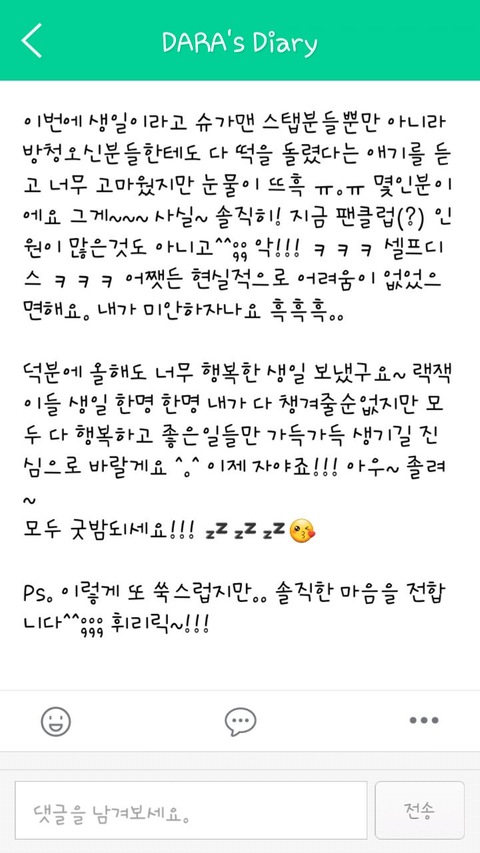 DARA's Diary
이번에 생일이라고 슈가맨 스탭분들뿐만 아니라
방청오신분들한테도 다 떡을 돌렸다는 얘기를 듣
고 너무 고마웠지만 눈물이 뜨흑 ㅠ.ㅠ 몇인분이
에요 그게~~~ 사실~ 솔직히! 지금 팬클럽(?) 인
원이 많은것도 아니고^^;; 악!!! ㅋㅋㅋ 셀프디
스 ㅋㅋㅋ 어쨋든 현실적으로 어려움이 없었으
면해요. 내가 미안하자나요 흑흑흑..
덕분에 올해도 너무 행복한 생일 보냈구요~ 랙잭
이들 생일 한명 한명 내가 다 챙겨줄순없지만 모
두 다 행복하고 좋은일들만 가득가득 생기길 진
심으로 바랄게요 ^.^ 이제 자야죠!!! 아우~ 졸려
~
모두 굿밤되세요!!! 💤💤💤😘
Ps. 이렇게 또 쑥스럽지만.. 솔직한 마음을 전합
니다^^;;; 휘리릭~!!!
댓글을 남겨보세요.
전송